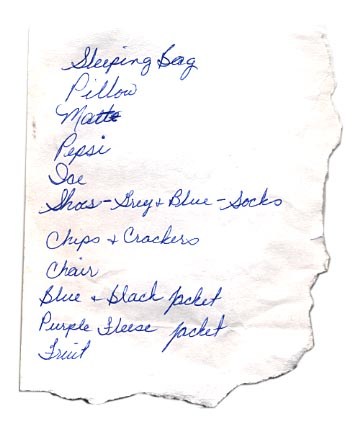 Sleeping Bag
Pillow
Matte
Pepsi
Ice
Shoes - Grey & Blue - Socks
Chips & Crackers
Chair
Blue & black jacket
Purple Fleese jacket
Fruit